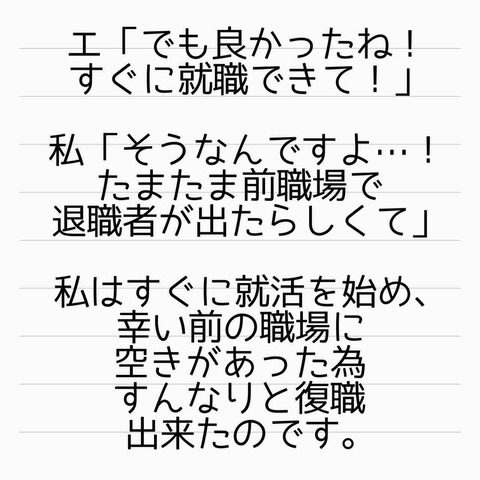 エ「でも良かったね！
すぐに就職できて！」
私「そうなんですよ…！
たまたま前職場で
退職者が出たらしくて」
私はすぐに就活を始め、
幸い前の職場に
空きがあった為
すんなりと復職
出来たのです。